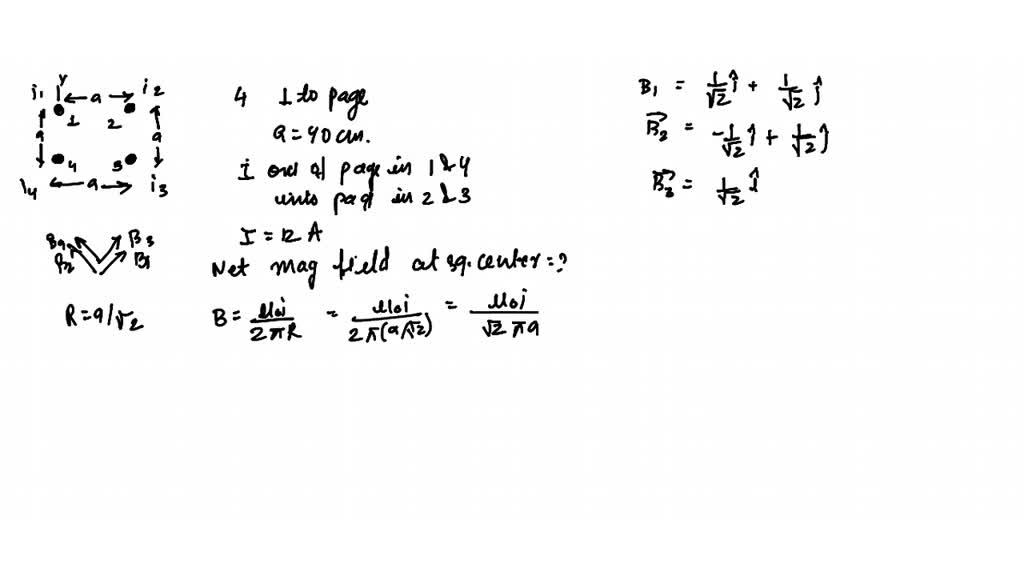 i1 y ←a→ i2
1 2
a a
4 3
i4 ←a→ i3
B4 B3
B2 B1
R = a/√2
4 ⊥ to page
a = 40 cm.
I out of page in 1 & 4
into page in 2 & 3
I = 12 A
Net mag field at sq. center = ?
B = μ0i / 2πR = μ0i / 2π(a/√2) = μ0i / √2 πa
B1 = 1/√2 î + 1/√2 ĵ
B⃗2 = -1/√2 î + 1/√2 ĵ
B⃗3 = 1/√2 î